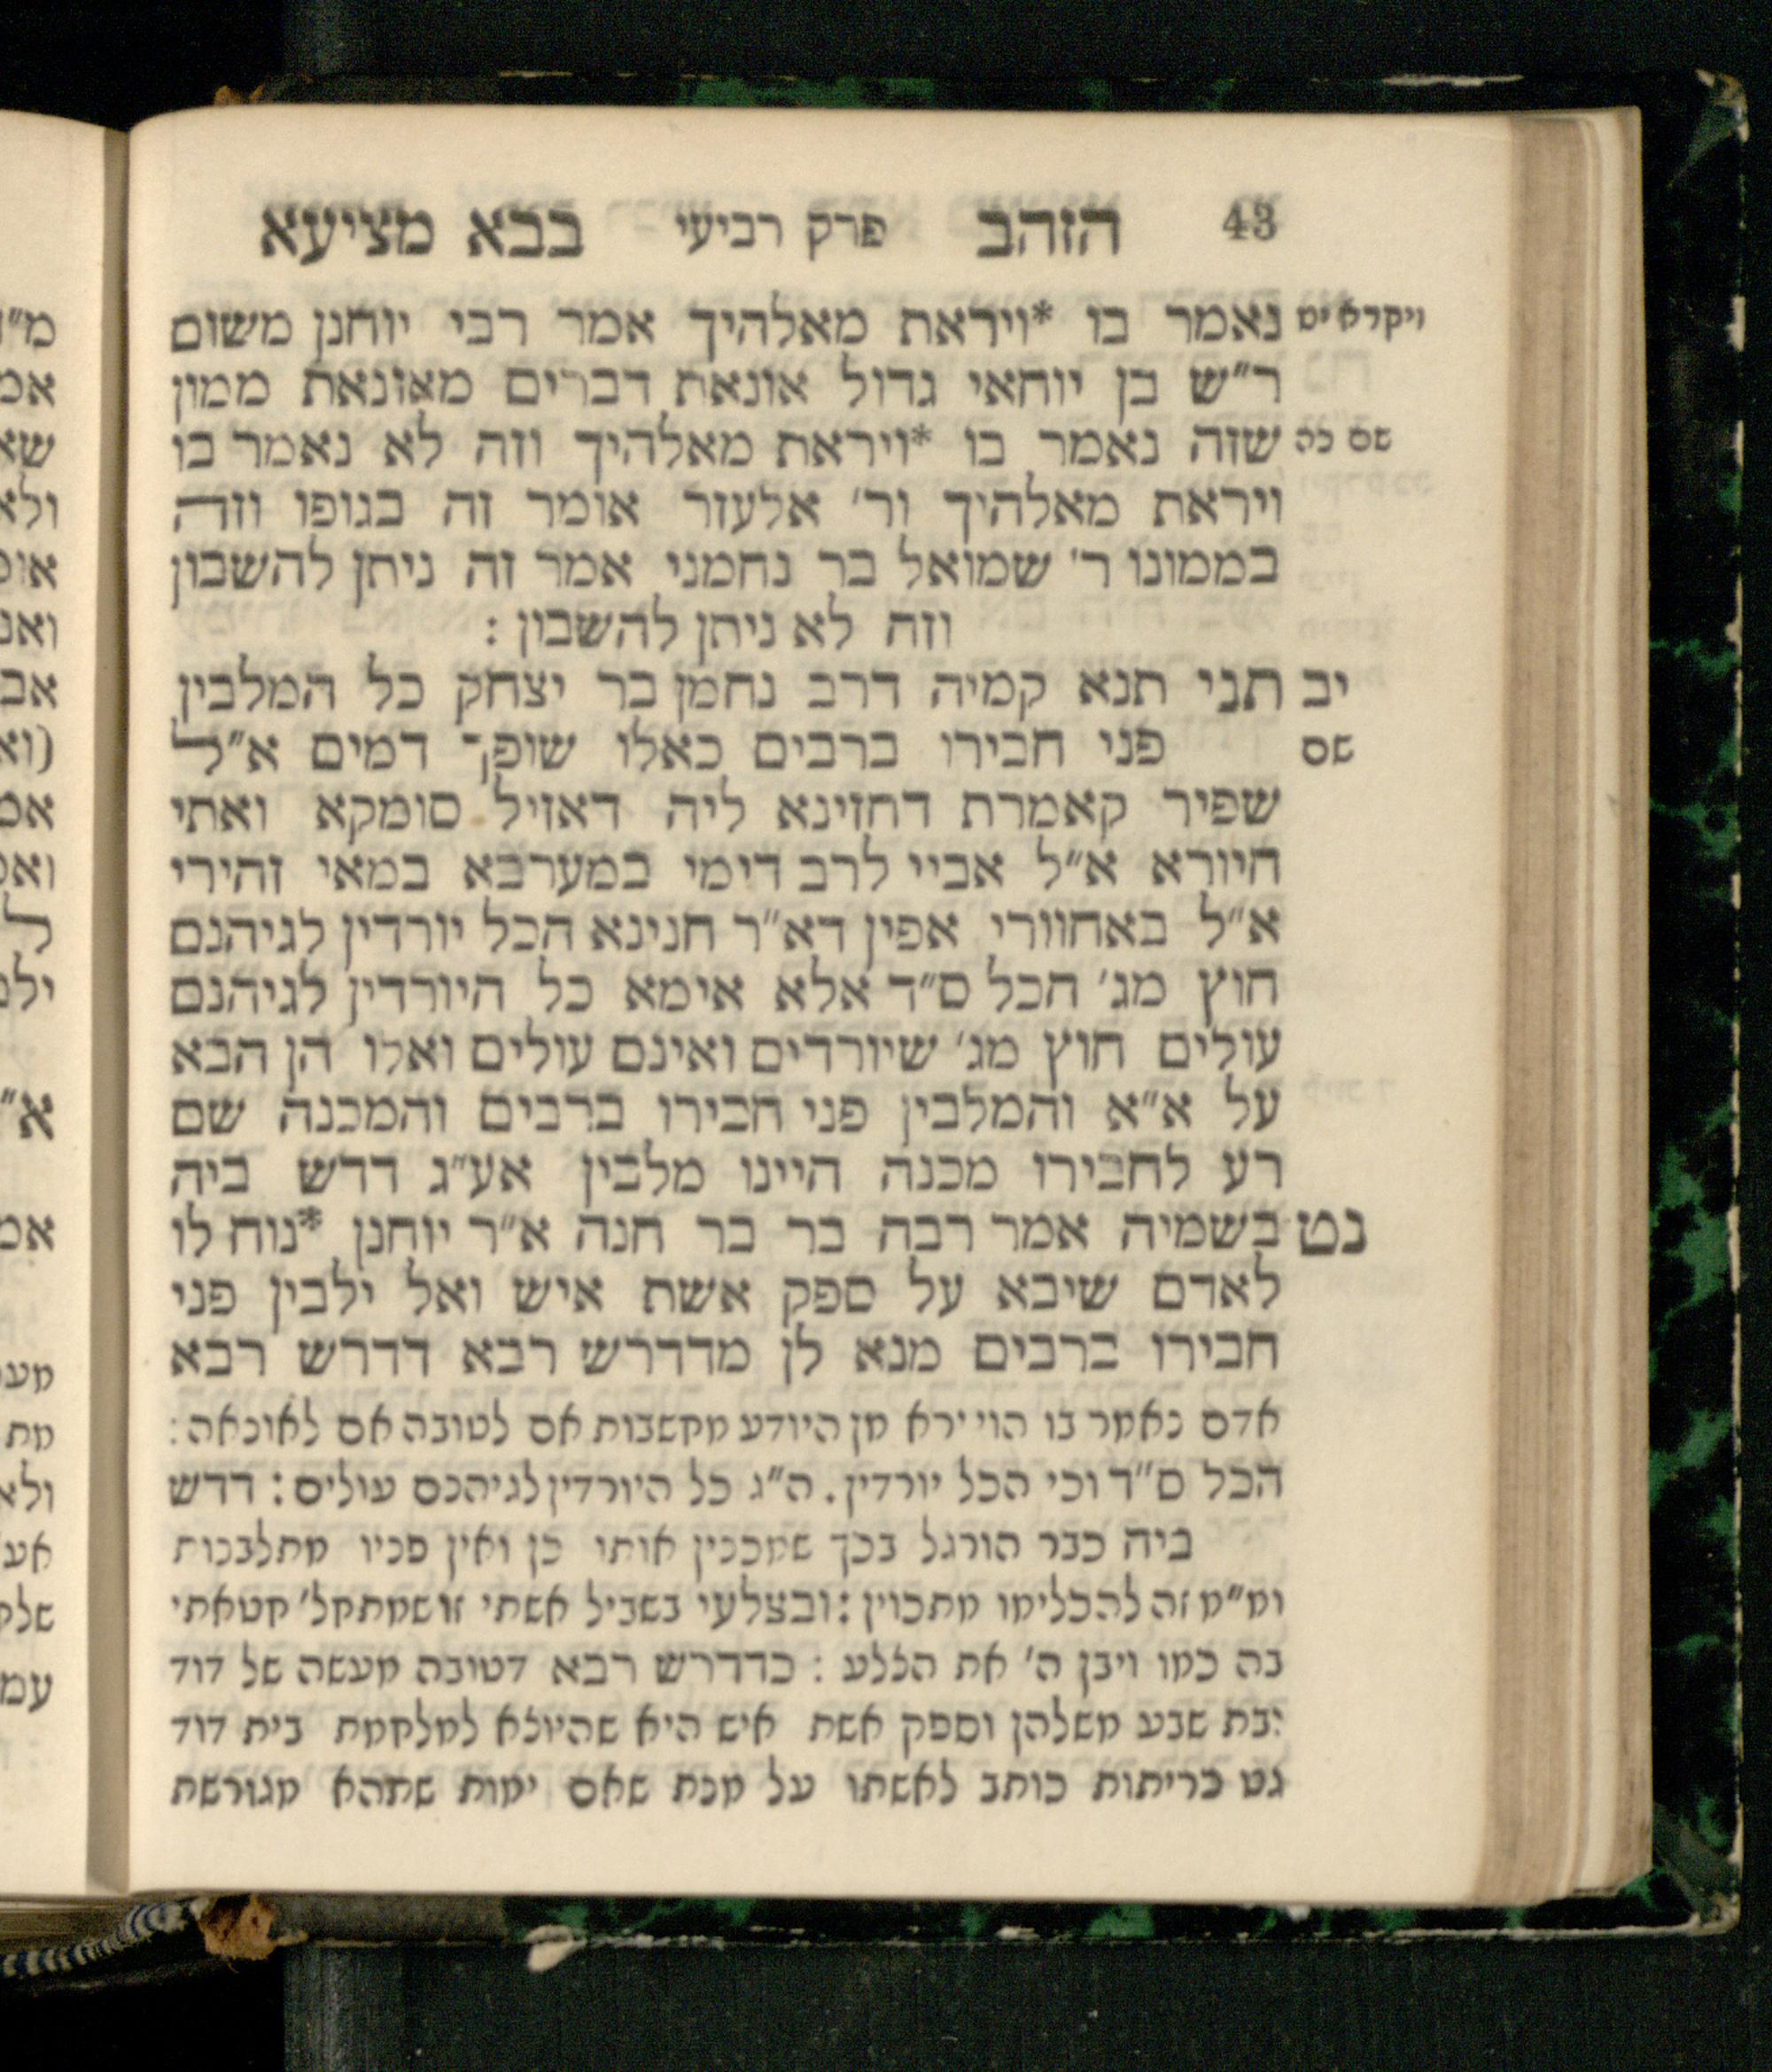 43 הזהב פרק רביעי בבא מציעא
ויקרא יט נאמר בו *ויראת מאלהיך אמר רבי יוחנן משום
ר״ש בן יוחאי גדול אונאת דברים מאונאת ממון
שם כה שזה נאמר בו *ויראת מאלהיך וזה לא נאמר בו
ויראת מאלהיך ור׳ אלעזר אומר זה בגופו וזה
בממונו ר׳ שמואל בר נחמני אמר זה ניתן להשבון
וזה לא ניתן להשבון :
יב תני תנא קמיה דרב נחמן בר יצחק כל המלבין
שם פני חבירו ברבים כאלו שופך דמים א״ל
שפיר קאמרת דחזינא ליה דאזיל סומקא ואתי
חיורא א״ל אביי לרב דימי במערבא במאי זהירי
א״ל באחוורי אפין דא״ר חנינא הכל יורדין לגיהנם
חוץ מג׳ הכל ס״ד אלא אימא כל היורדין לגיהנם
עולים חוץ מג׳ שיורדים ואינם עולים ואלו הן הבא
על א״א והמלבין פני חבירו ברבים והמכנה שם
רע לחבירו מכנה היינו מלבין אע״ג דדש ביה
נט בשמיה אמר רבה בר בר חנה א״ר יוחנן *נוח לו
לאדם שיבא על ספק אשת איש ואל ילבין פני
חבירו ברבים מנא לן מדדרש רבא דדרש רבא
אדם נאמר בו הוי ירא מן היודע מחשבות אם לטובה אם לאונאה :
הכל ס״ד וכי הכל יורדין . ה״ג כל היורדין לגיהנם עולים : דדש
ביה כבר הורגל בכך שמכנין אותו כן ואין פניו מתלבנות
ומ״מ זה להכלימו מתכוין : ובצלעי בשביל אשתי זו שמתחל׳ חטאתי
בה כמו ויבן ה׳ את הצלע : כדדרש רבא דטובה מעשה של דוד
ובת שבע משלהן וספק אשת איש היא שהיוצא למלחמת בית דוד
גט כריתות כותב לאשתו על מנת שאם ימות שתהא מגורשת